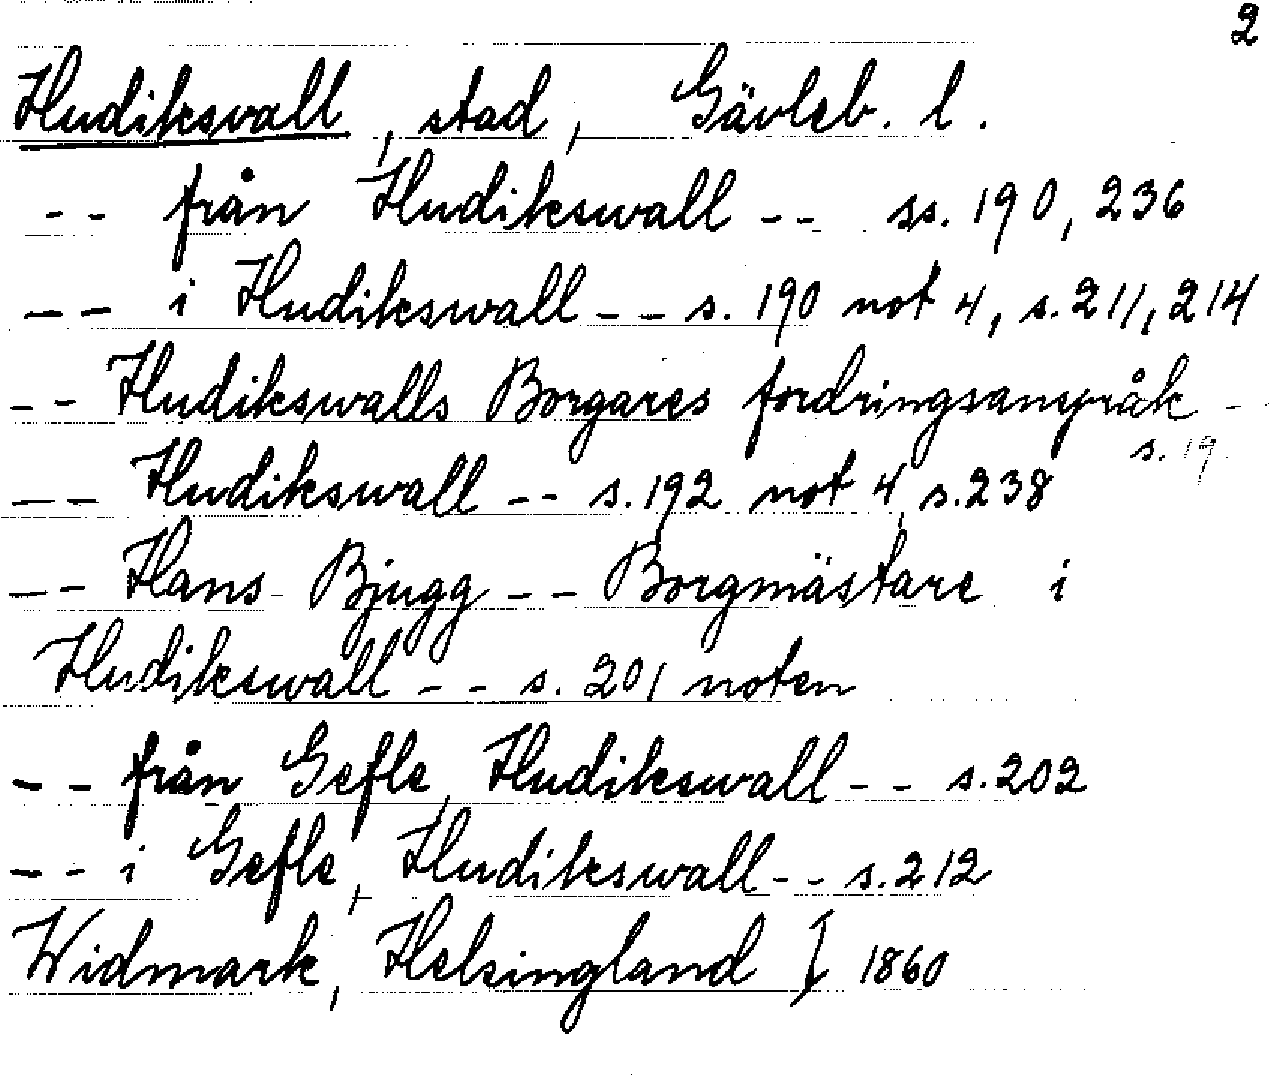 2
Hudiksvall, stad, Gävleb. l.
-- från Hudikswall -- ss. 190, 236
-- i Hudikswall -- s. 190 not 4, s. 211, 214
-- Hudikswalls Borgares fordringsanspråk -
s. 19
-- Hudikswall -- s. 192 not 4, s. 238
-- Hans Bjugg -- Borgmästare i
Hudikswall -- s. 201 noten
-- från Gefle, Hudikswall -- s. 202
-- i Gefle, Hudikswall -- s. 212
Widmark, Helsingland I 1860